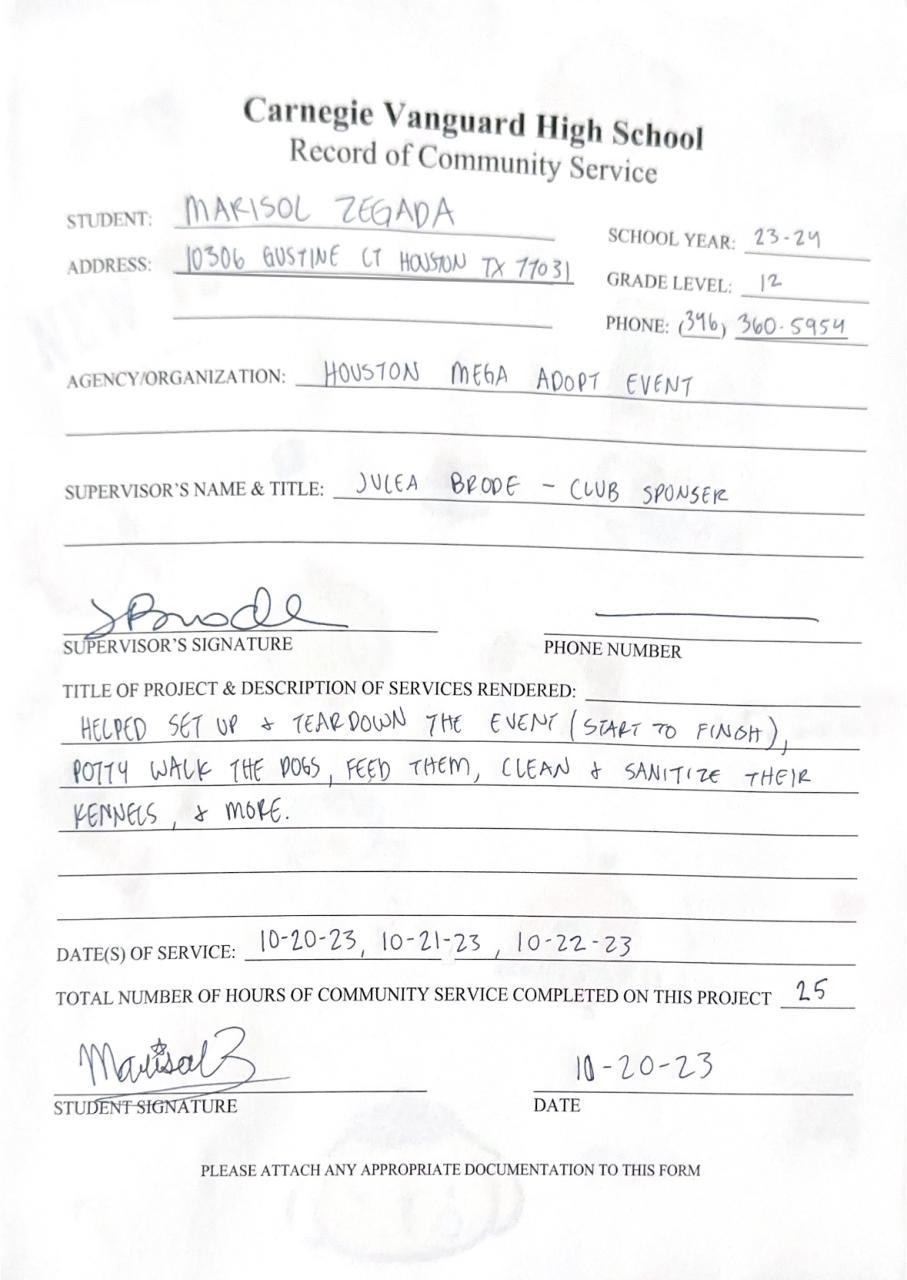 Carnegie Vanguard High School
Record of Community Service
STUDENT: MARISOL ZEGADA
SCHOOL YEAR: 23-24
ADDRESS: 10306 GUSTINE CT HOUSTON TX 77031
GRADE LEVEL: 12
PHONE: (346) 360-5954
AGENCY/ORGANIZATION: HOUSTON MEGA ADOPT EVENT
SUPERVISOR'S NAME & TITLE: JULEA BRODE - CLUB SPONSER
JBrode
SUPERVISOR'S SIGNATURE PHONE NUMBER
TITLE OF PROJECT & DESCRIPTION OF SERVICES RENDERED:
HELPED SET UP & TEARDOWN THE EVENT (START TO FINISH),
POTTY WALK THE DOGS, FEED THEM, CLEAN & SANITIZE THEIR
KENNELS, & MORE.
DATE(S) OF SERVICE: 10-20-23, 10-21-23, 10-22-23
TOTAL NUMBER OF HOURS OF COMMUNITY SERVICE COMPLETED ON THIS PROJECT 25
Marisol Z 10-20-23
STUDENT SIGNATURE DATE
PLEASE ATTACH ANY APPROPRIATE DOCUMENTATION TO THIS FORM